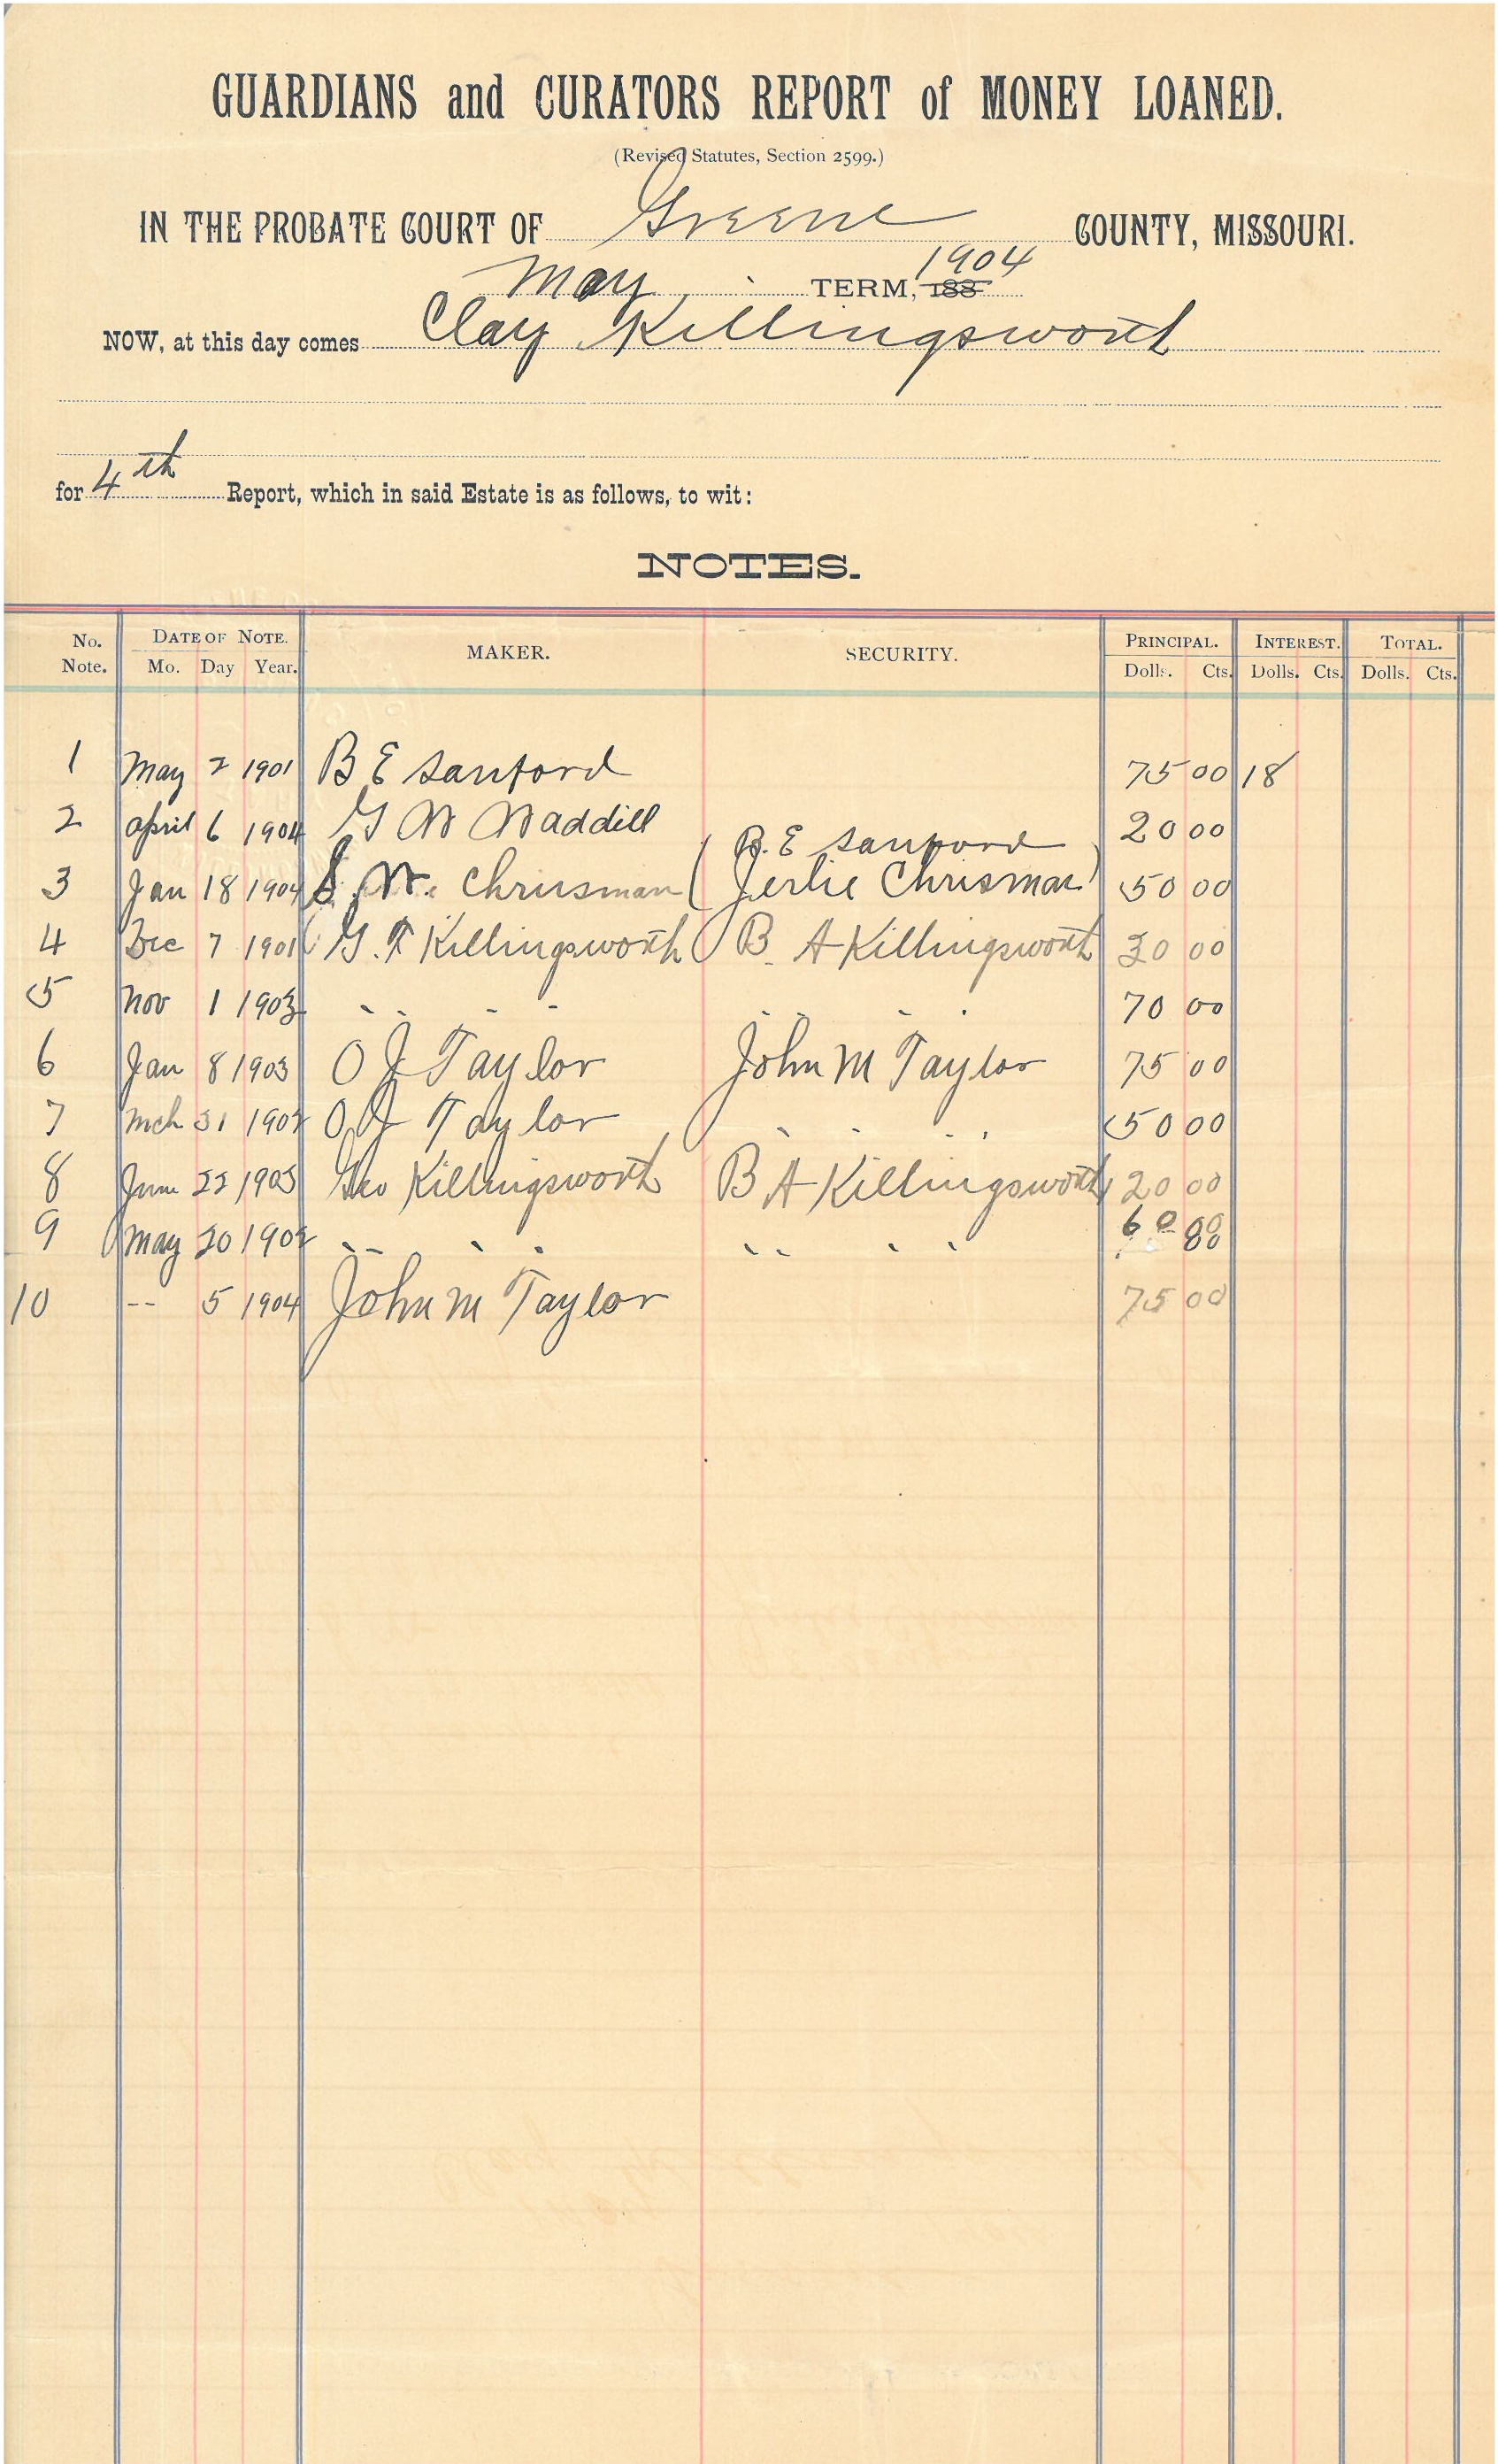 GUARDIANS and CURATORS REPORT of MONEY LOANED.
(Revised Statutes, Section 2599.)
IN THE PROBATE COURT OF Greene COUNTY, MISSOURI.
May TERM, 188 1904
NOW, at this day comes Clay Killingsworth
for 4th Report, which in said Estate is as follows, to wit:
NOTES.
No. Note. DATE OF NOTE. Mo. Day Year. MAKER. SECURITY. PRINCIPAL. Dolls. Cts. INTEREST. Dolls. Cts. TOTAL. Dolls. Cts.
1 May 2 1901 B E Sanford 75 00 18
2 April 6 1904 G W Waddill 20 00
B. E Sanford
3 Jan 18 1904 S. W. Chrisman ( Jerlie Chrisman 50 00
4 Dec 7 1901 G. F Killingsworth B. A Killingsworth 30 00
5 Nov 1 1903 " " " " " " " 70 00
6 Jan 8 1903 O J Taylor John M Taylor 75 00
7 Mch 31 190 O J Taylor " " " 50 00
8 June 22 1903 Geo Killingsworth B A Killingsworth 20 00
9 May 20 1902 " " " " " " " " 60 00
10 -- 5 1904 John M Taylor 75 00